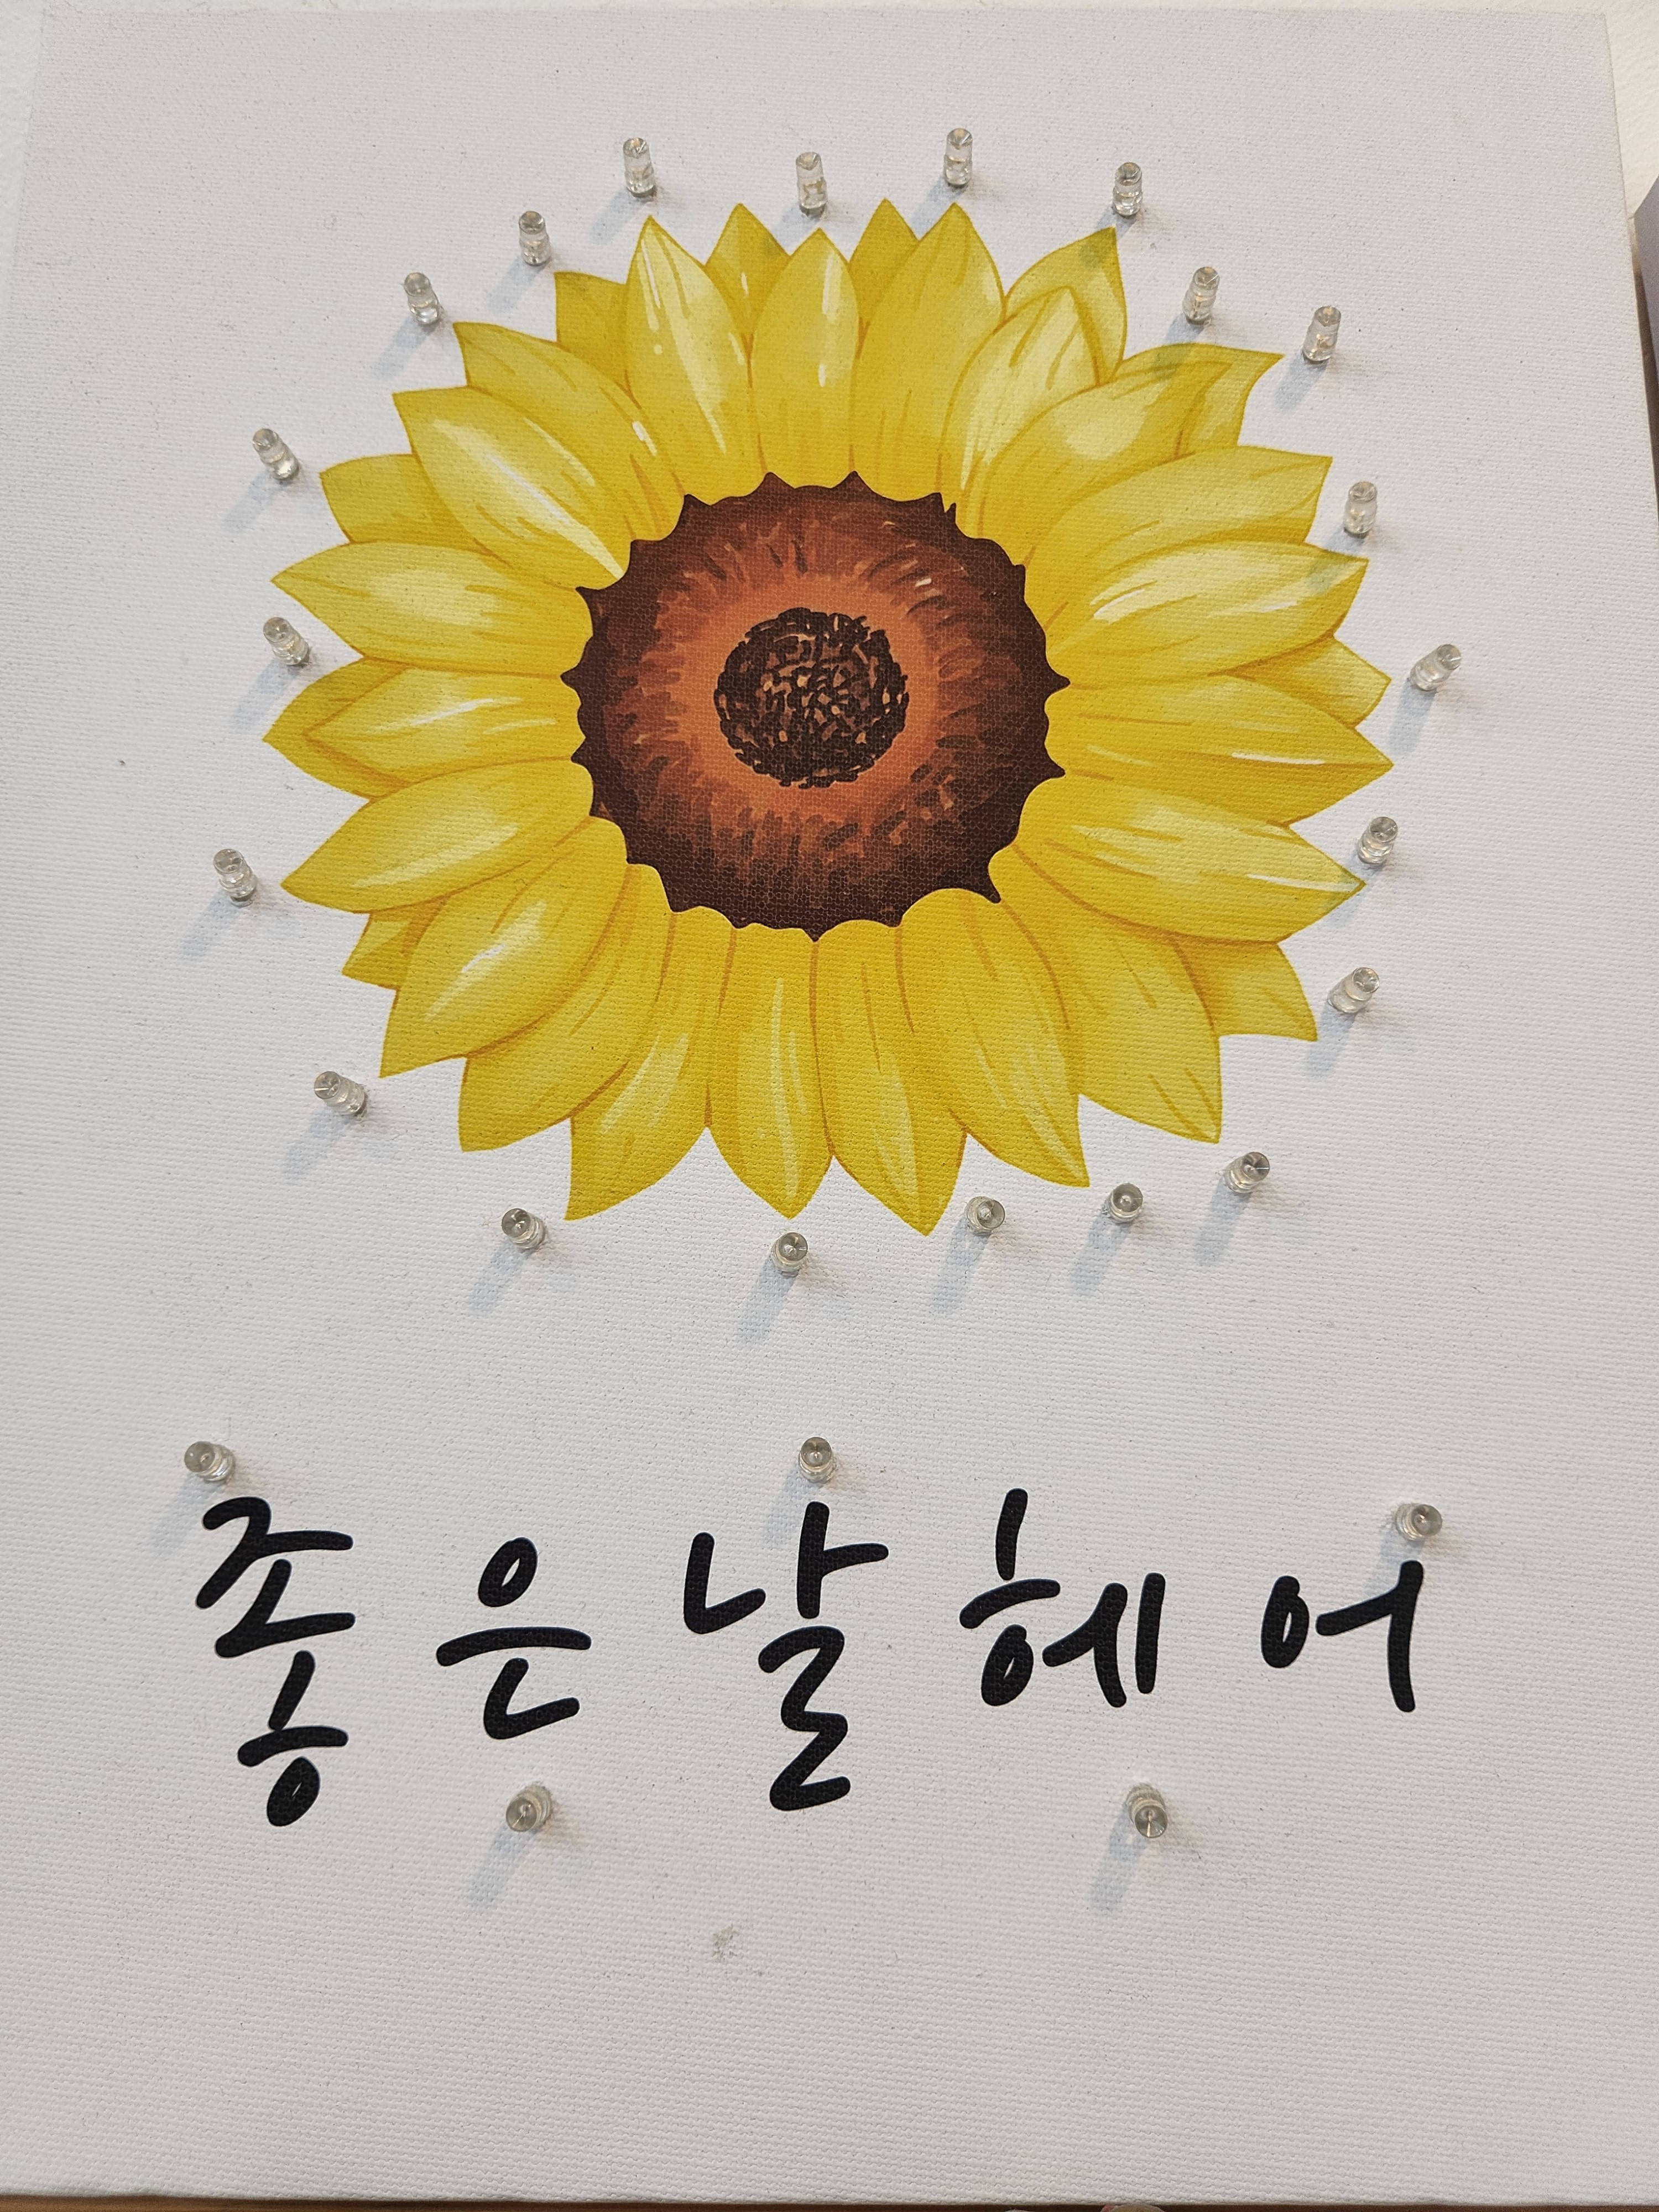 좋은날헤어